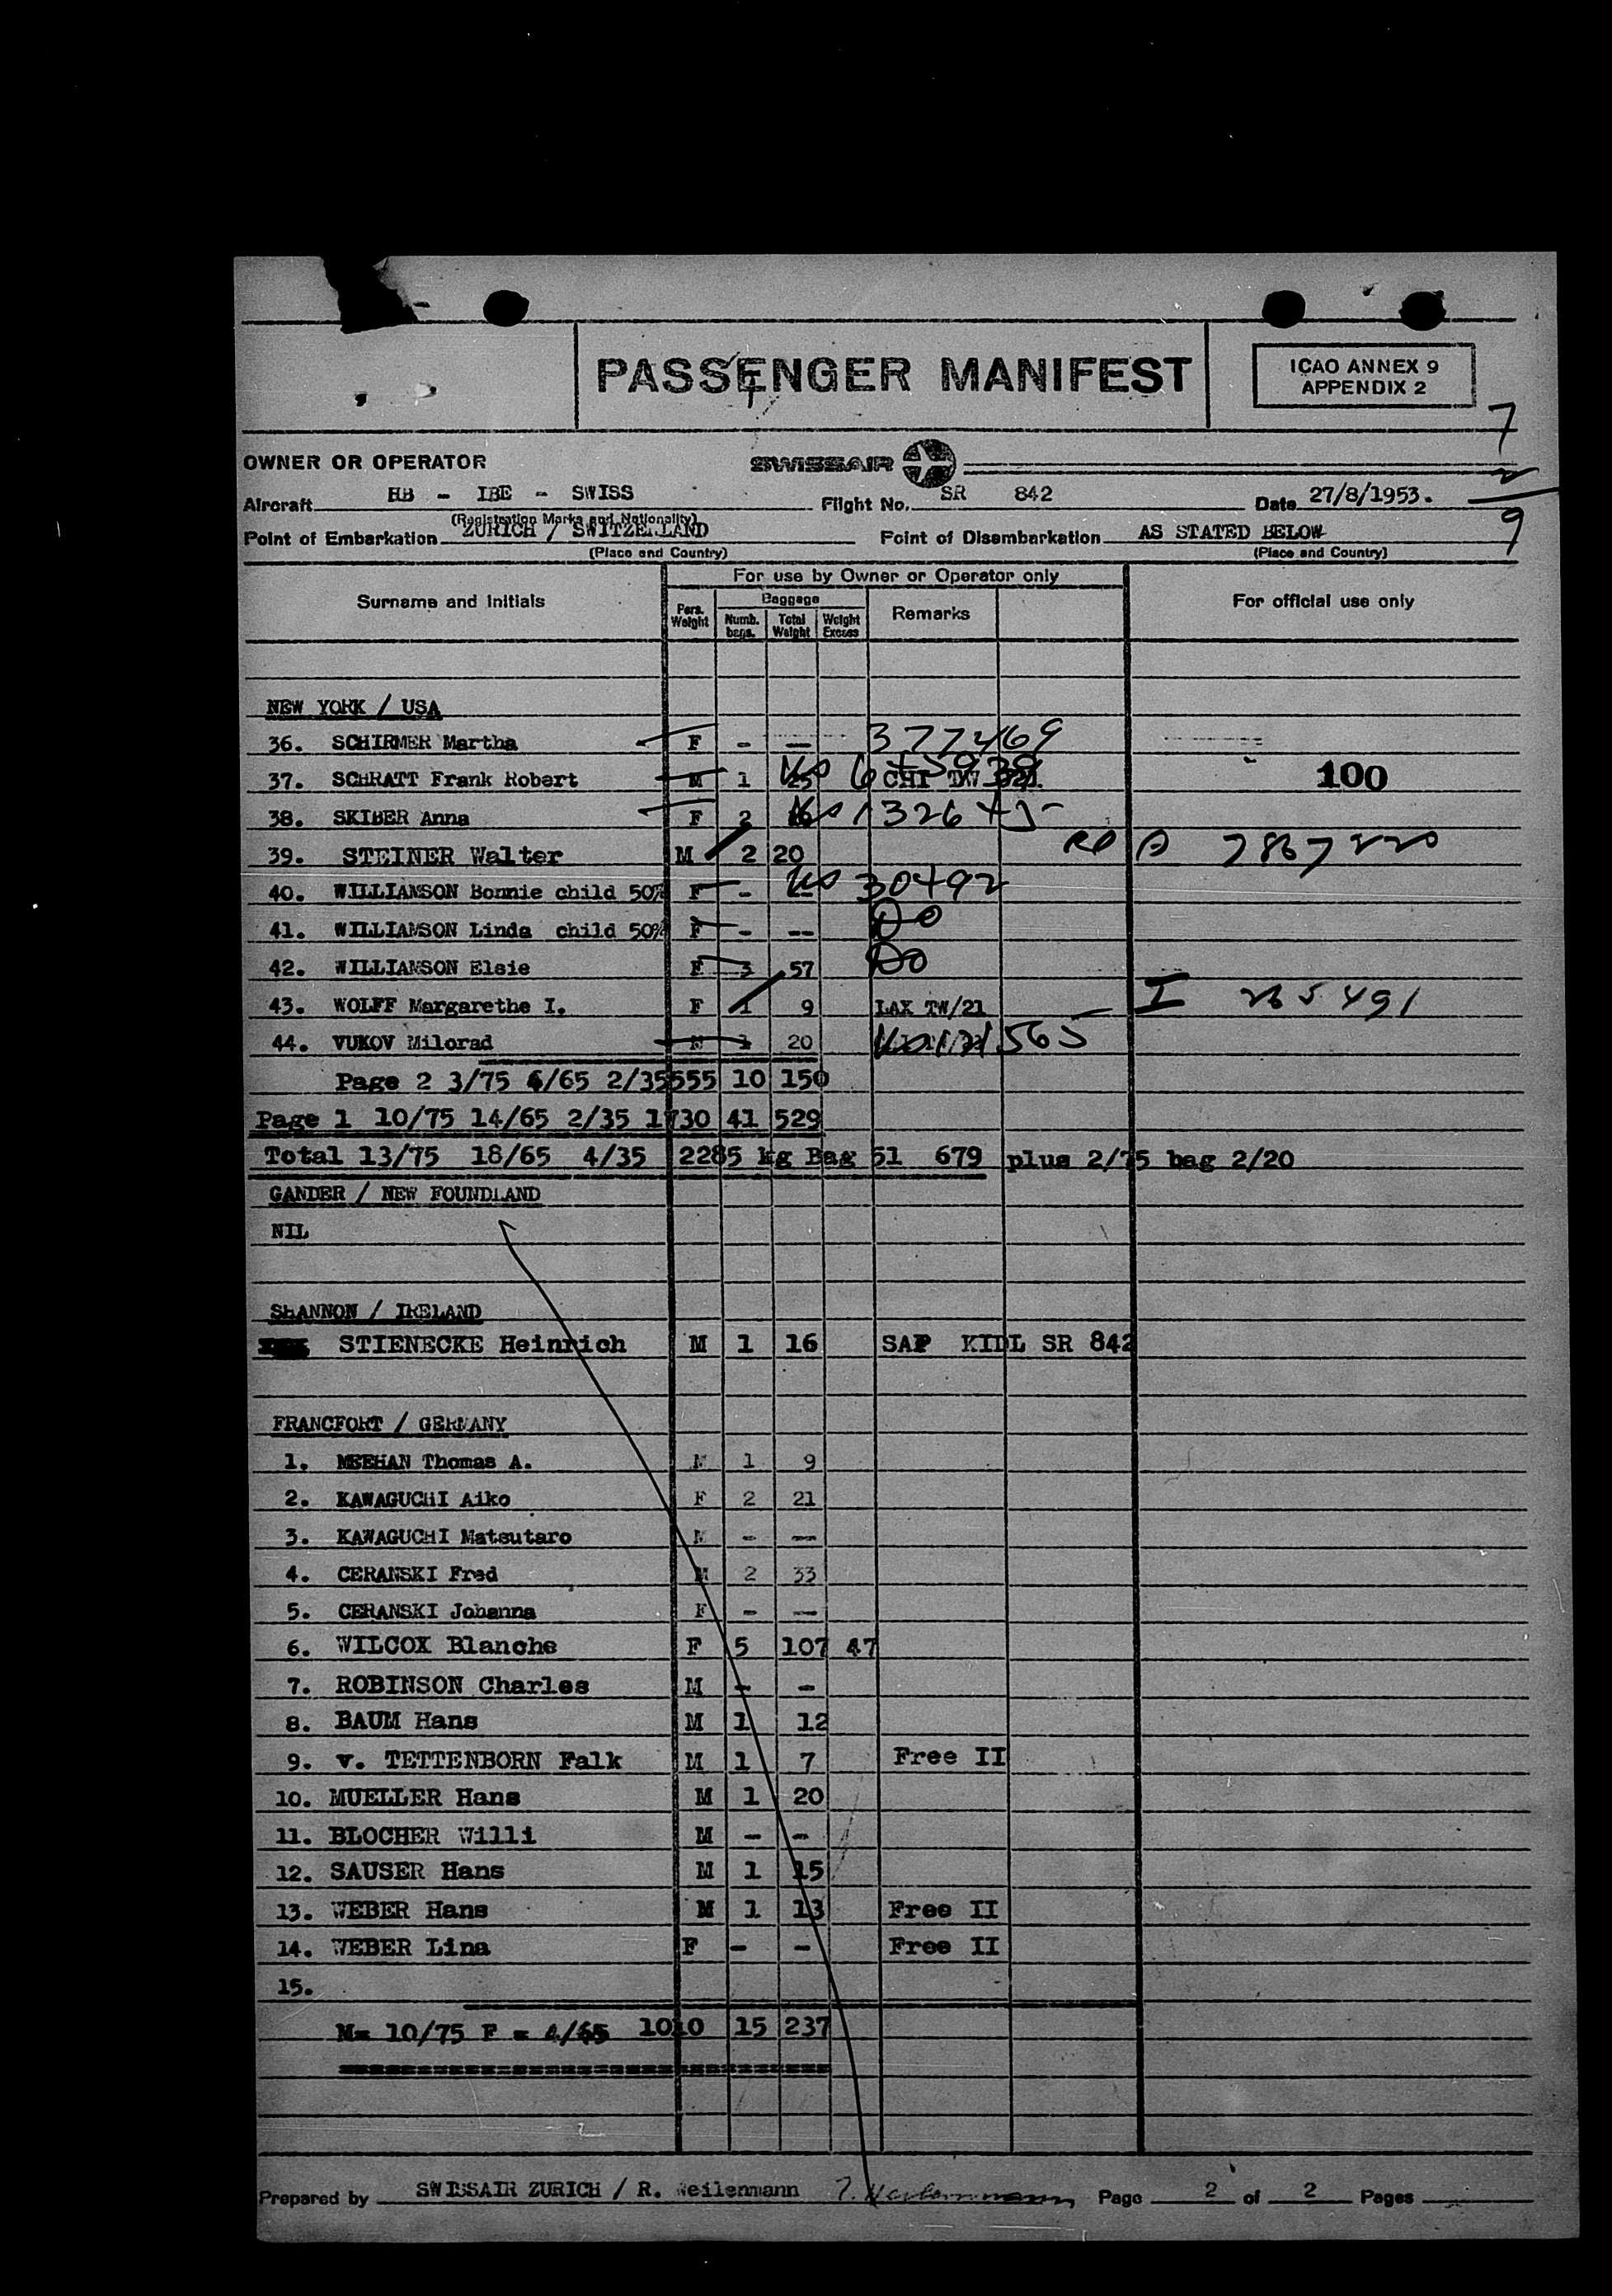 PASSENGER MANIFEST
ICAO ANNEX 9
APPENDIX 2
7
2
9
OWNER OR OPERATOR SWISSAIR
Aircraft HB - IBE - SWISS Flight No. SR 842 Date 27/8/1953.
(Registration Marks and Nationality)
Point of Embarkation ZURICH / SWITZERLAND Point of Disembarkation AS STATED BELOW
(Place and Country) (Place and Country)
Surname and Initials For use by Owner or Operator only For official use only
Pers. Weight Baggage Numb. bags. Total Weight Weight Excess Remarks
NEW YORK / USA
36. SCHIRMER Martha F - — 377469
37. SCHRATT Frank Robert M 1 25 CHI TW 100
38. SKIBER Anna F 2
39. STEINER Walter M 2 20 A 7867220
40. WILLIAMSON Bonnie child 50% F - -- 30492
41. WILLIAMSON Linda child 50% F - -- Do
42. WILLIAMSON Elsie F 3 57 Do
43. WOLFF Margarethe I. F 1 9 LAX TW/21 I 265491
44. VUKOV Milorad M 1 20 565
Page 2 3/75 4/65 2/35 555 10 150
Page 1 10/75 14/65 2/35 1730 41 529
Total 13/75 18/65 4/35 2285 kg Bag 51 679 plus 2/75 bag 2/20
GANDER / NEW FOUNDLAND
NIL
SHANNON / IRELAND
STIENECKE Heinrich M 1 16 SAP KIDL SR 842
FRANCFORT / GERMANY
1. MEEHAN Thomas A. M 1 9
2. KAWAGUCHI Aiko F 2 21
3. KAWAGUCHI Matsutaro M - --
4. CERANSKI Fred M 2 33
5. CERANSKI Johanna F - --
6. WILCOX Blanche F 5 107 47
7. ROBINSON Charles M - -
8. BAUM Hans M 1 12
9. v. TETTENBORN Falk M 1 7 Free II
10. MUELLER Hans M 1 20
11. BLOCHER Willi M - -
12. SAUSER Hans M 1 15
13. WEBER Hans M 1 13 Free II
14. WEBER Lina F - - Free II
15.
M= 10/75 F = 4/65 1010 15 237
Prepared by SWISSAIR ZURICH / R. Weilenmann Page 2 of 2 Pages